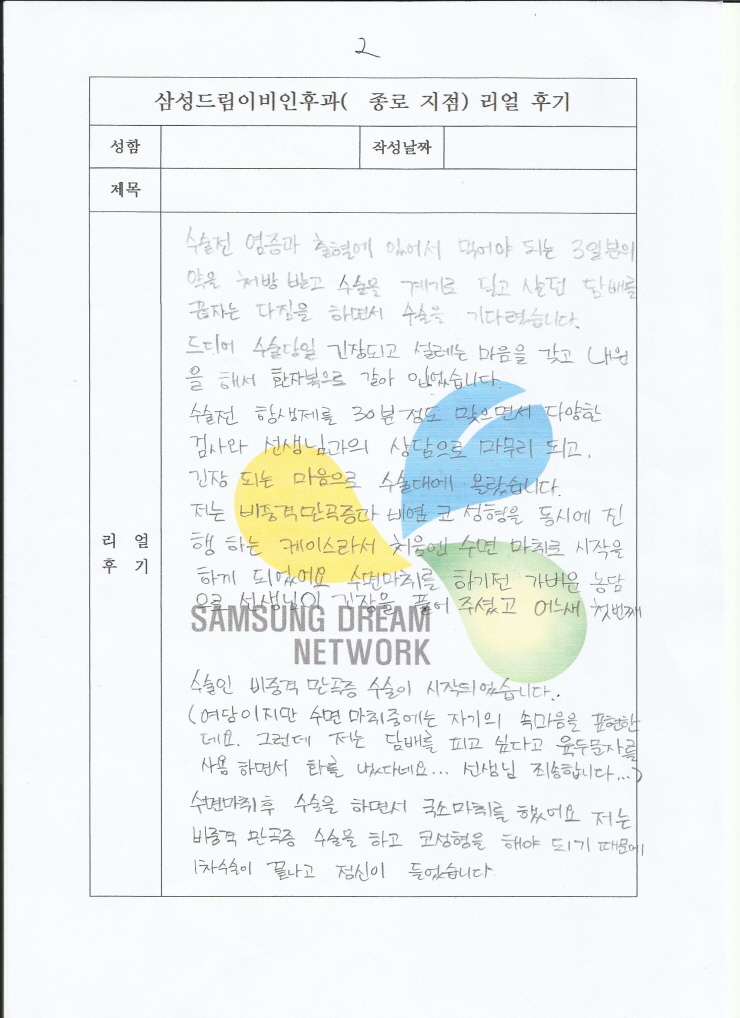 2
삼성드림이비인후과( 종로 지점) 리얼 후기
성함
작성날짜
제목
리 얼
후 기
수술전 염증과 출혈에 있어서 먹어야 되는 3일분의
약을 처방 받고 수술을 계기로 달고 살던 담배를
끊자는 다짐을 하면서 수술을 기다렸습니다.
드디어 수술당일 긴장되고 설레는 마음을 갖고 내원
을 해서 환자복으로 갈아 입었습니다.
수술전 항생제를 30분정도 맞으면서 다양한
검사와 선생님과의 상담으로 마무리 되고,
긴장 되는 마음으로 수술대에 올랐습니다.
저는 비중격만곡증과 비염 코 성형을 동시에 진
행 하는 케이스라서 처음엔 수면 마취로 시작을
하게 되었어요 수면마취를 하기전 가벼운 농담
으로 선생님이 긴장을 풀어 주셨고 어느새 첫번째
SAMSUNG DREAM
NETWORK
수술인 비중격 만곡증 수술이 시작되었습니다.
(여담이지만 수면 마취중에는 자기의 속마음을 표현한
데요. 그런데 저는 담배를 피고 싶다고 육두문자를
사용 하면서 화를 냈다네요... 선생님 죄송합니다...)
수면마취후 수술을 하면서 국소마취를 했어요 저는
비중격 만곡증 수술을 하고 코성형을 해야 되기 때문에
1차수술이 끝나고 정신이 들었습니다